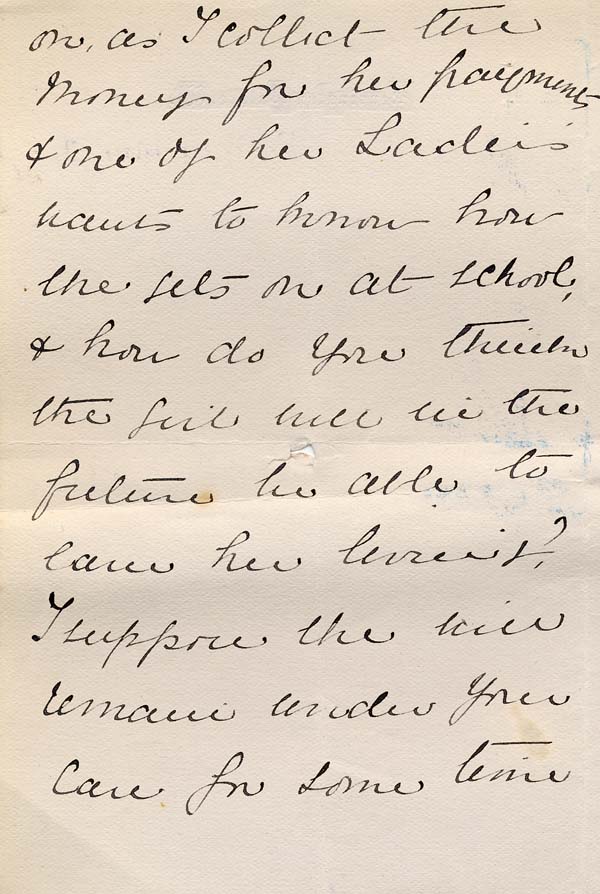 on, as I collect the
Money for her payments
& one of her Ladies
wants to know how
she gets on at school,
& how do you think
the girl will in the
future be able to
earn her living?
I suppose she will
remain under your
care for some time